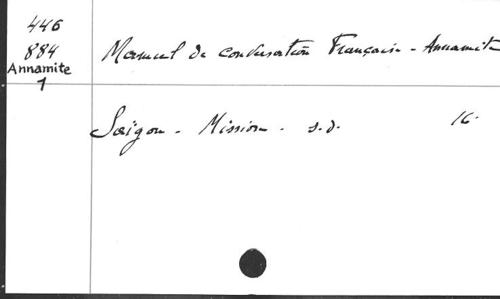 446
884
Annamite
1
Manuel de conversation Française - Annamite
Saïgon - Mission - s.d. 16.